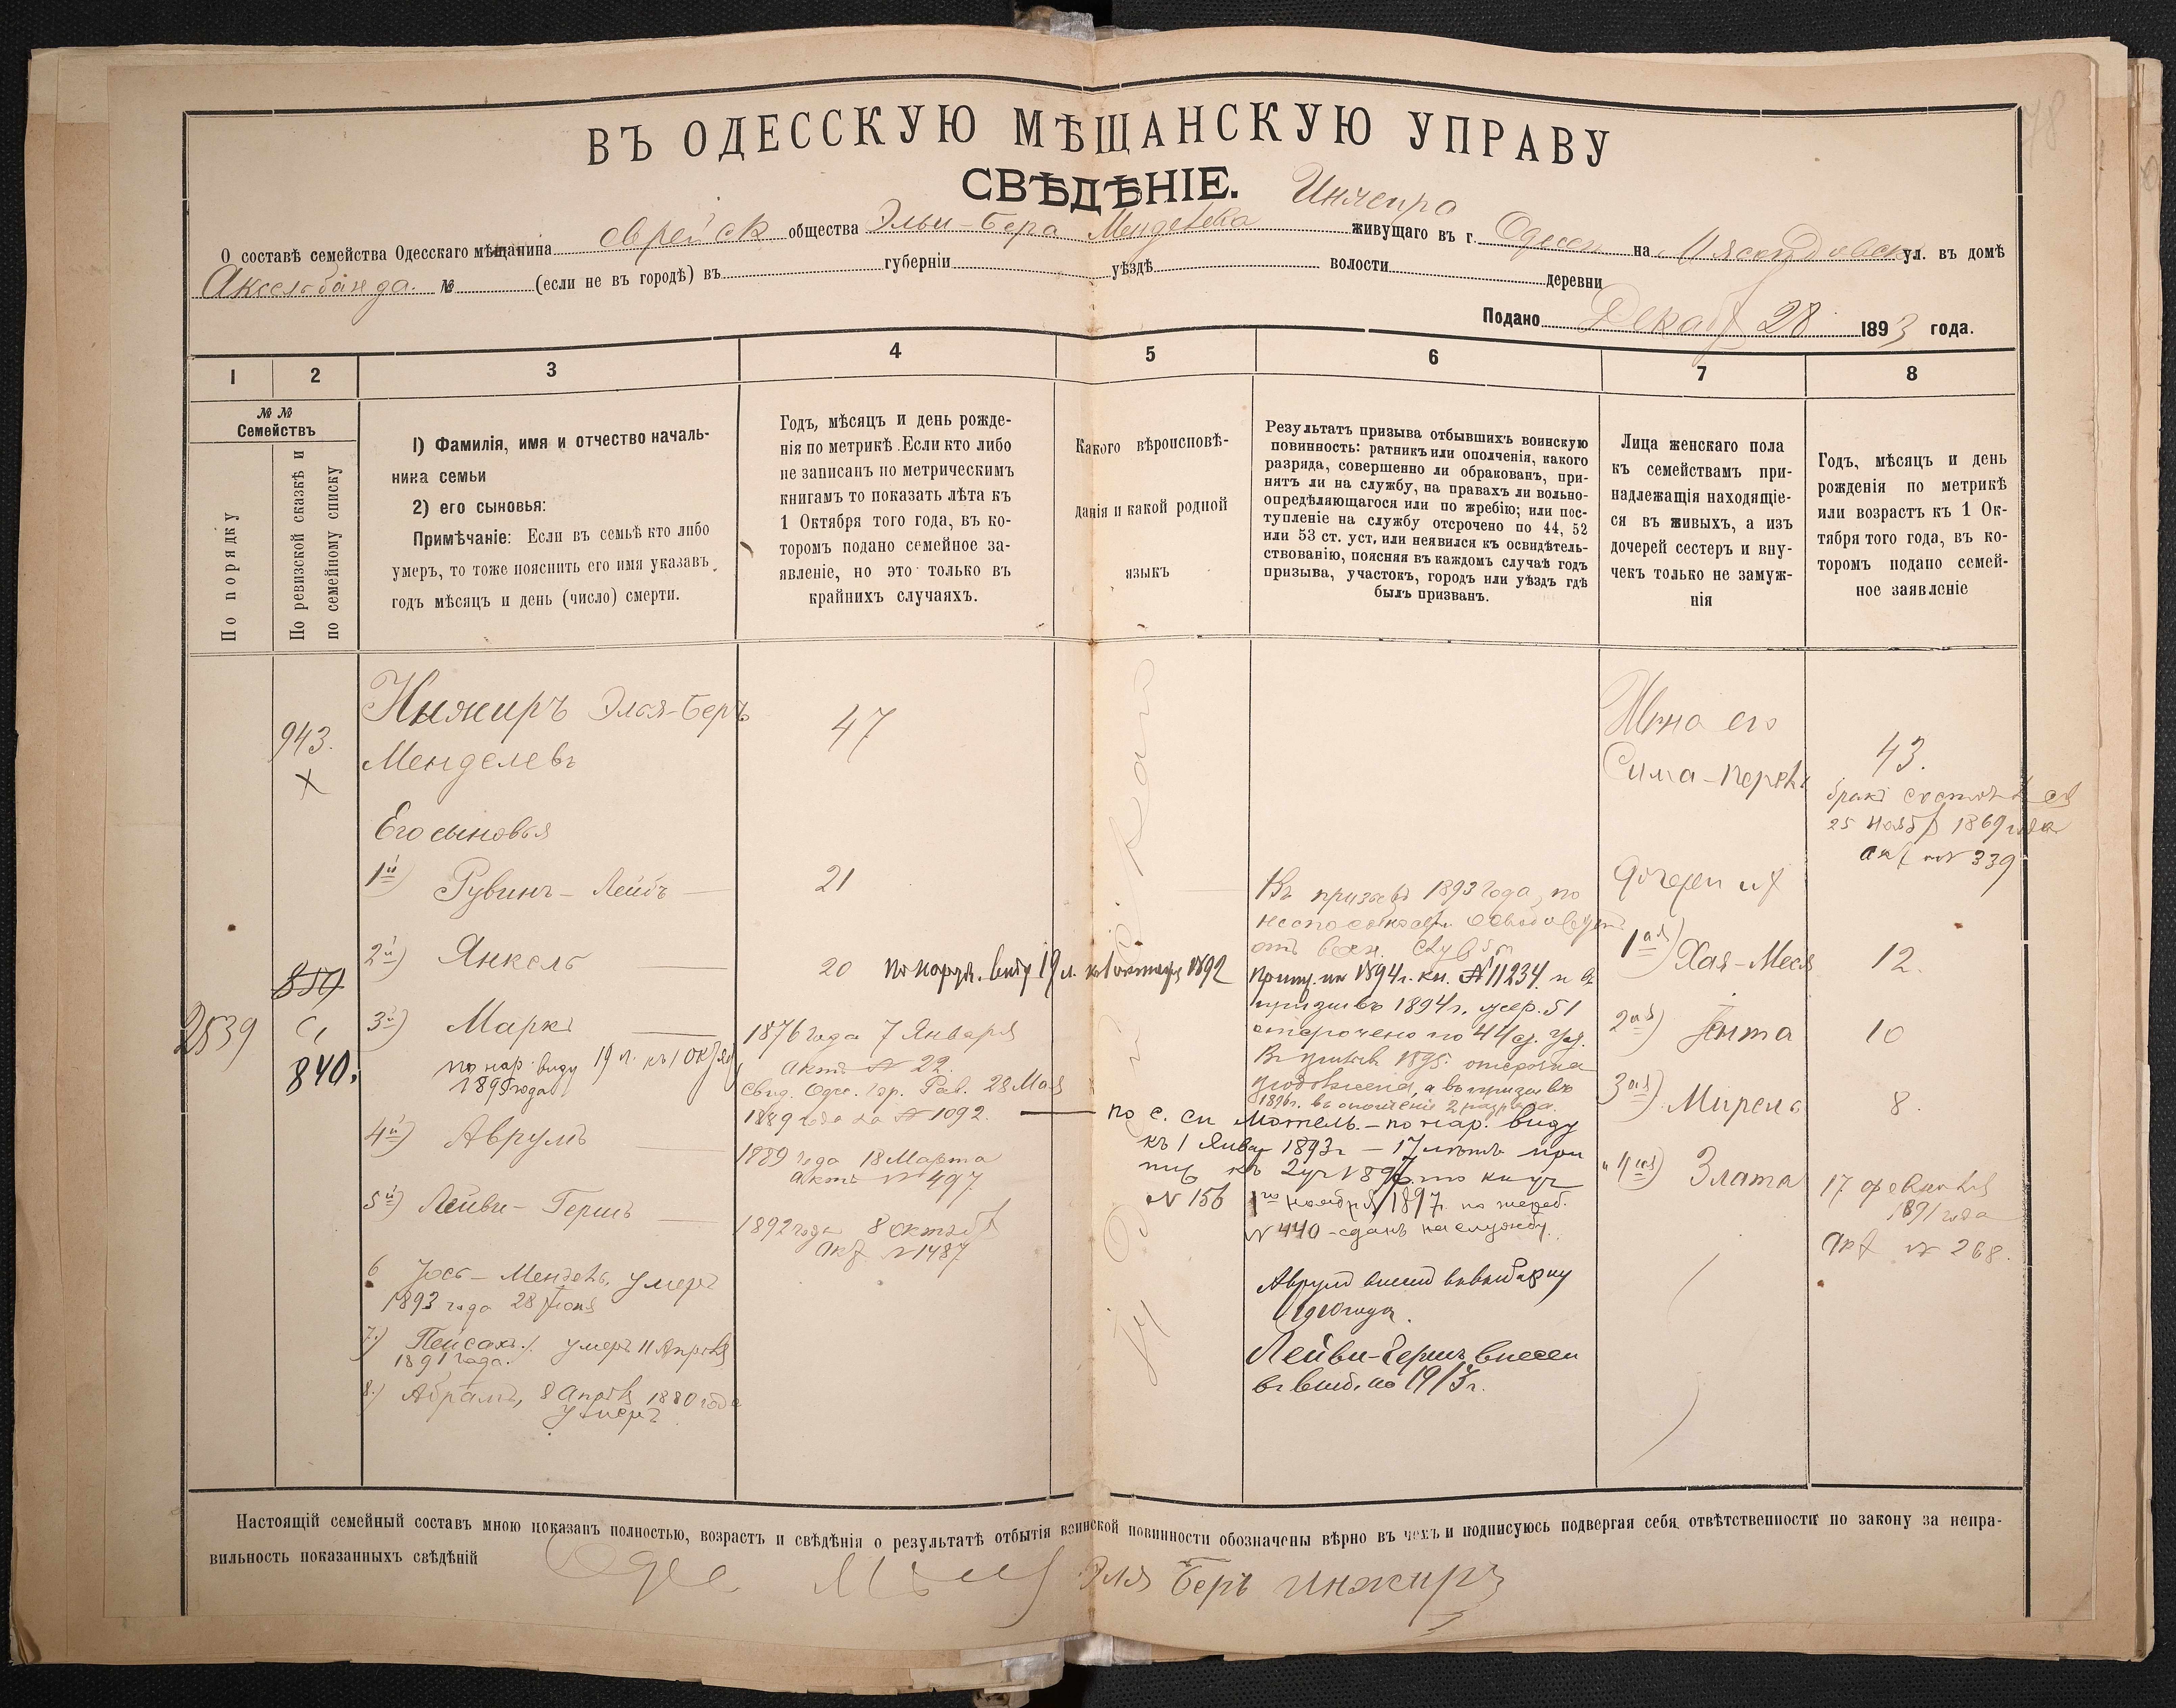 ВЪ ОДЕССКУЮ МѢЩАНСКУЮ УПРАВУ
СВѢДѢНІЕ.
Инжира
О составѣ семейства Одесскаго мѣщанина еврейск общества Эльи-Бера Менделева живущаго въ г. Одессѣ на ул. въ домѣ
Аксельбанда. № (если не въ городѣ) въ губерніи уѣздѣ волости деревни
Подано Декабр 28 1893 года.
1 2 3 4 5 6 7 8
№ №
Семействъ
По порядку
По ревизской сказкѣ и
по семейному списку
1) Фамилія, имя и отчество началь-
ника семьи
2) его сыновья:
Примѣчаніе: Если въ семьѣ кто либо
умеръ, то тоже пояснить его имя указавъ
годъ мѣсяцъ и день (число) смерти.
Годъ, мѣсяцъ и день рожде-
нія по метрикѣ. Если кто либо
не записанъ по метрическимъ
книгамъ то показать лѣта къ
1 Октября того года, въ ко-
торомъ подано семейное за-
явленіе, но это только въ
крайнихъ случаяхъ.
Какого вѣроисповѣ-
данія и какой родной
языкъ
Результатъ призыва отбывшихъ воинскую
повинность: ратникъ или ополченія, какого
разряда, совершенно ли обракованъ, при-
нятъ ли на службу, на правахъ ли вольно-
опредѣляющагося или по жребію; или пос-
тупленіе на службу отсрочено по 44, 52
или 53 ст. уст. или неявился къ освидѣтель-
ствованію, поясняя въ каждомъ случаѣ годъ
призыва, участокъ, городъ или уѣздъ гдѣ
былъ призванъ.
Лица женскаго пола
къ семействамъ при-
надлежащія находящіе-
ся въ живыхъ, а изъ
дочерей сестеръ и вну-
чекъ только не замуж-
нія
Годъ, мѣсяцъ и день
рожденія по метрикѣ
или возрастъ къ 1 Ок-
тября того года, въ ко-
торомъ подано семей-
ное заявленіе
943.
Инжиръ Элья-Беръ
Менделевъ
47
Жена его
Сима-Перель
43.
бракъ состоялся
25 Ноябр 1869 года
акт № 339
Его сыновья
1й) Рувинъ-Лейбъ
21
Въ призывѣ 1893 года, по
Дочери их
1ая) Хая-Меся
12.
2й) Янкель
20 по наруж. виду 19 л. къ 1 октября 1892
1894 г. кн. № 11234 и в
призывѣ 1894 г. жер. 51
отсрочено по 44 ст. Уст.
Въ призывѣ 1895. отсрочка
1896 г. въ ополченіе 2 разряда.
850
2539
840.
3й) Маркъ
по нар. виду 19 л. къ 1 Октября
1895 года
1876 года 7 Января
актъ № 22.
Свид. Одес. Гор. Рав. 28 Мая
1889 года за № 1092.
по с. сп Мотель. - по нар. виду
къ 1 Января 1893 г - 17 лѣтъ
№ 156 1го ноября 1897. по жереб.
№ 440 - сданъ на службу.
2ая) Ента
10
3ая) Мирель
8.
4й) Аврумъ
1889 года 18 Марта
актъ № 497
4ая) Злата
17 февраля
1891 года
акт № 268.
5й) Лейви-Гершъ
1892 года 8 Октябр
акт № 1487
6 Іось-Мендель, умеръ
1893 года 28 Іюня
7.) Пейсахъ умеръ 11 Апрѣля
1891 года.
8.) Абрамъ, 8 Апрѣля 1880 года
умеръ.
Аврумъ
1910 года.
Лейви-Гершъ внесен
Настоящій семейный составъ мною показанъ полностью, возрастъ и свѣдѣнія о результатѣ отбытія воинской повинности обозначены вѣрно въ чемъ и подписуюсь подвергая себя отвѣтственности по закону за непра-
вильность показанныхъ свѣдѣній
Эля Беръ Инжиръ